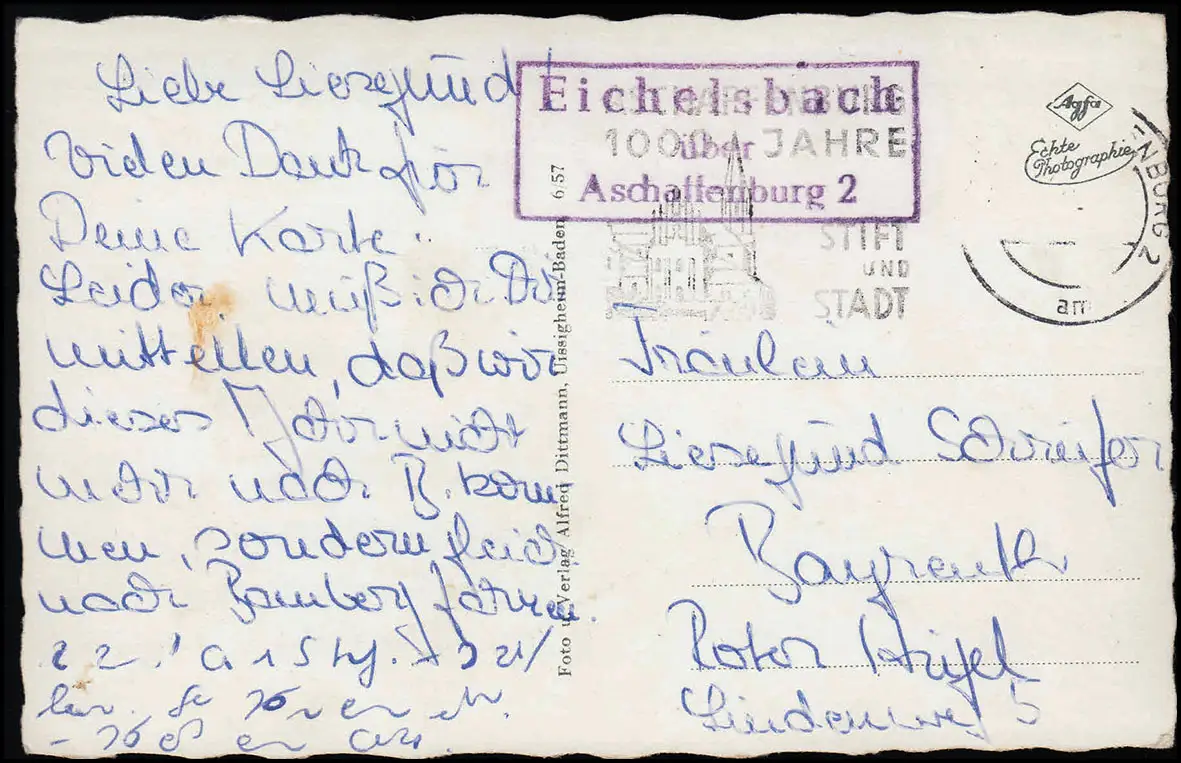 Liebe Liesegünd!
Vielen Dank für
Deine Karte.
Leider muß ich Dir
mitteilen, daß wir
dieses Jahr nicht
mehr nach B. kom-
men, sondern gleich
nach Bamberg fahren.
Foto u. Verlag Alfred Dittmann, Uissigheim-Baden 6/57
Eichelsbach
über
Aschaffenburg 2
1000 JAHRE
STIFT
UND
STADT
Agfa
Echte
Photographie
NBURG 2
am
Fräulein
Liesegünd Schreifer
Bayreuth
Roter Hügel
Lindenweg 5